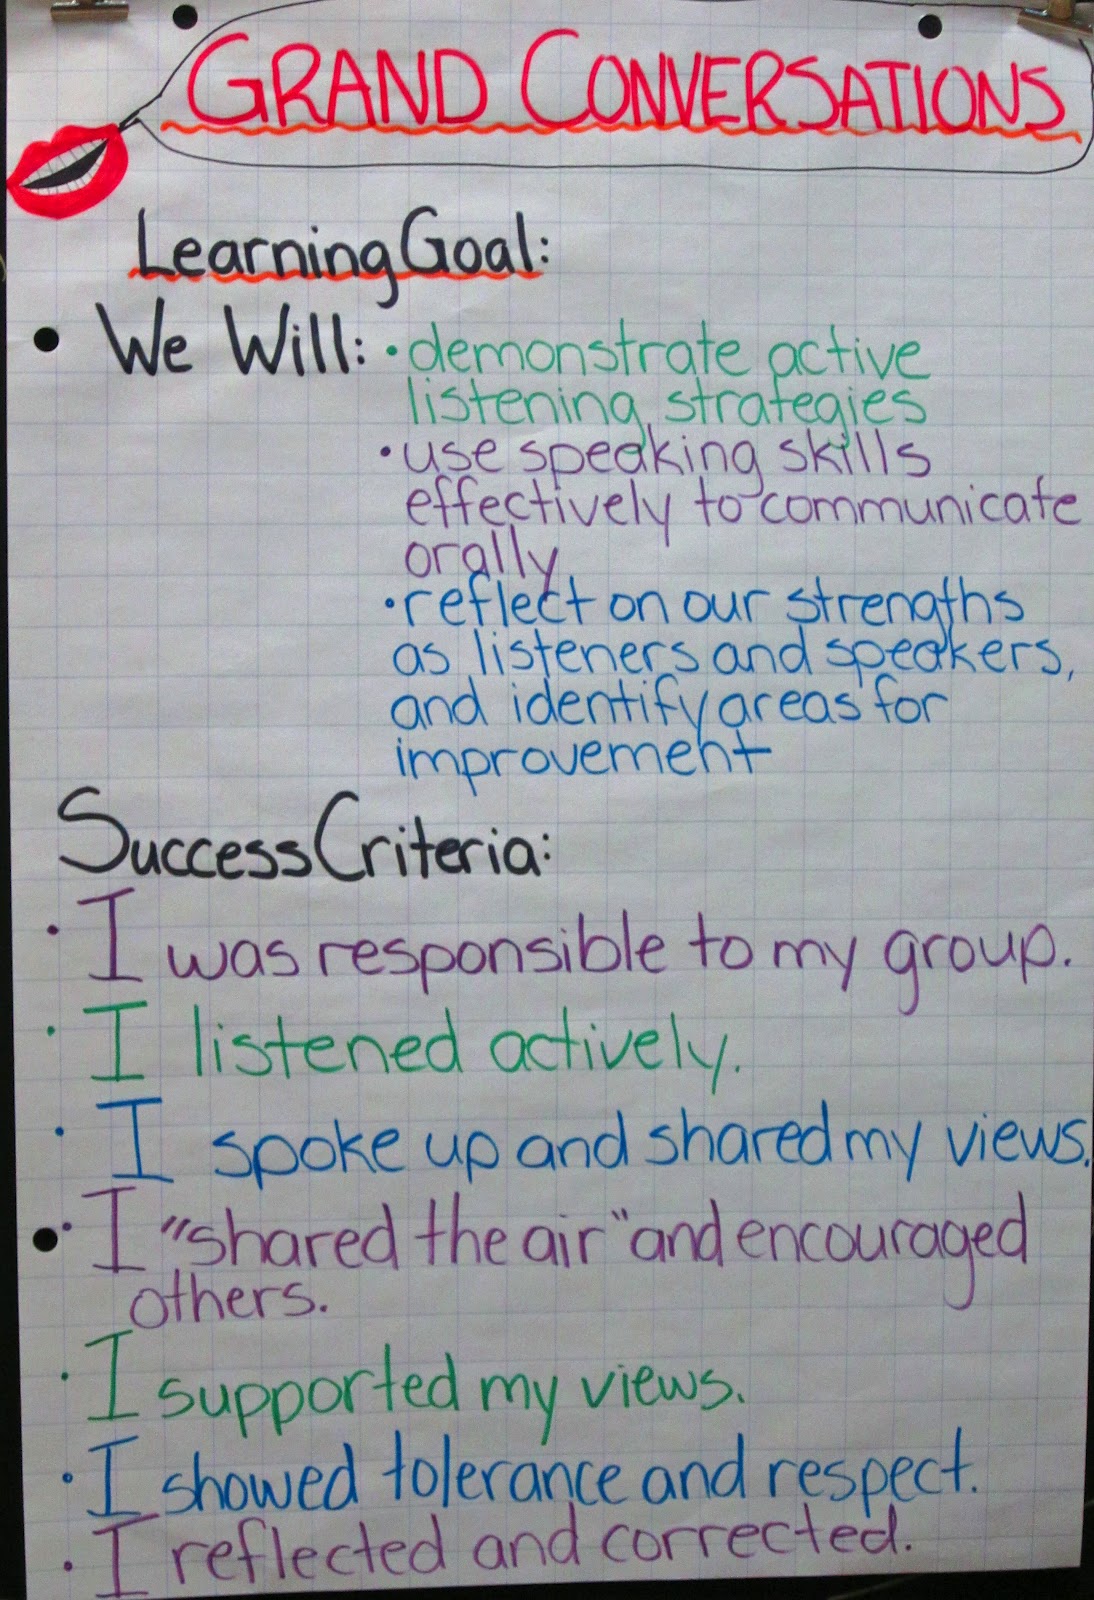 GRAND CONVERSATIONS
Learning Goal:
• We Will: • demonstrate active
listening strategies
• use speaking skills
effectively to communicate
orally
• reflect on our strengths
as listeners and speakers,
and identify areas for
improvement
Success Criteria:
• I was responsible to my group.
• I listened actively.
• I spoke up and shared my views.
• I "shared the air" and encouraged
others.
• I supported my views.
• I showed tolerance and respect.
• I reflected and corrected.